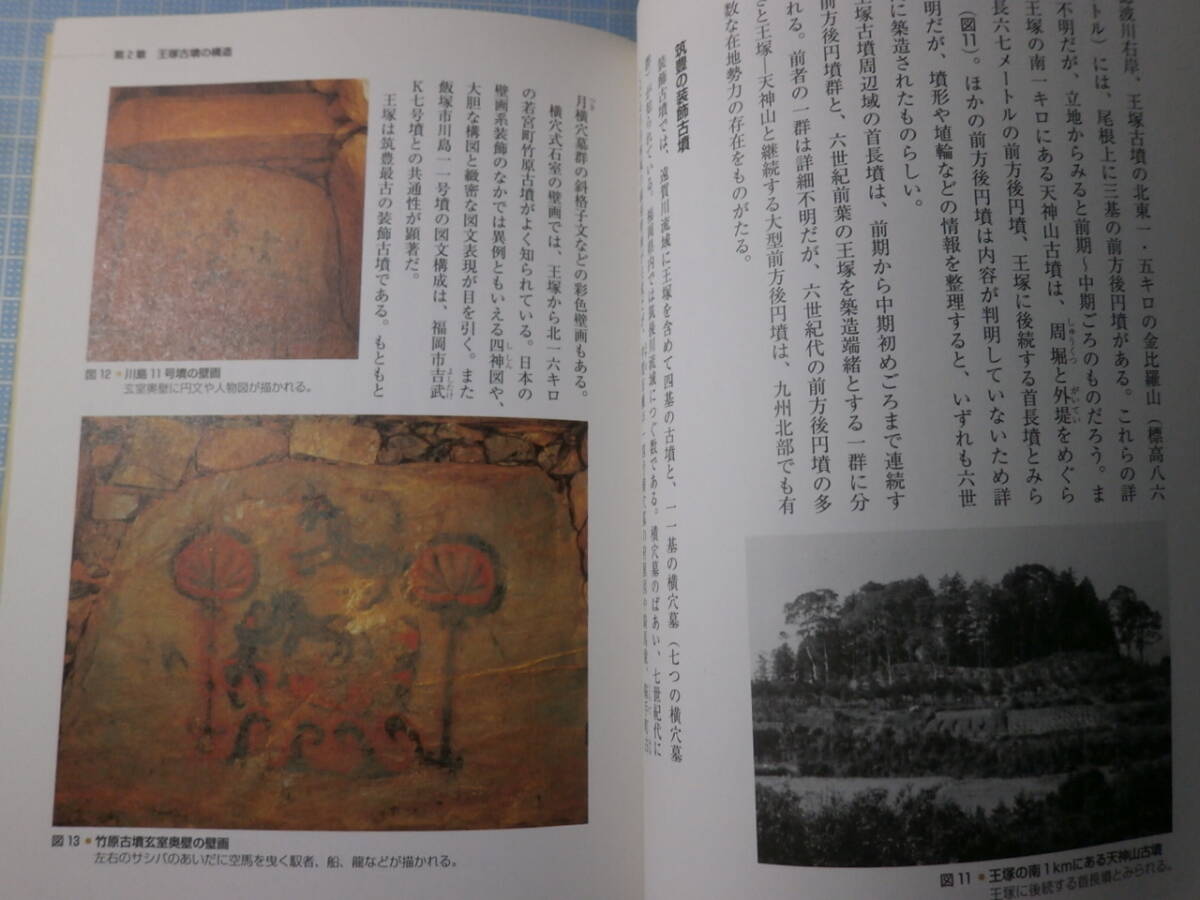 渡川右岸、王塚古墳の北東一・五キロの金比羅山（標高八六
トル）には、尾根上に三基の前方後円墳がある。これらの詳
不明だが、立地からみると前期～中期ごろのものだろう。ま
王塚の南一キロにある天神山古墳は、周堀と外堤をめぐら
しゅうくつ
がいてい
長六七メートルの前方後円墳、王塚に後続する首長墳とみら
（図11）。ほかの前方後円墳は内容が判明していないため詳
明だが、墳形や埴輪などの情報を整理すると、いずれも六世
に築造されたものらしい。
王塚古墳周辺域の首長墳は、前期から中期初めごろまで連続す
前方後円墳群と、六世紀前葉の王塚を築造端緒とする一群に分
れる。前者の一群は詳細不明だが、六世紀代の前方後円墳の多
さと王塚―天神山と継続する大型前方後円墳は、九州北部でも有
数な在地勢力の存在をものがたる。
筑豊の装飾古墳
装飾古墳では、遠賀川流域に王塚を含めて四基の古墳と、一一基の横穴墓（七つの横穴墓
群）が知られている。福岡県内では筑後川流域につぐ数である。横穴墓のばあい、七世紀代に
図11・王塚の南1kmにある天神山古墳
王塚に後続する首長墳とみられる。
第2章 王塚古墳の構造
月横穴墓群の斜格子文などの彩色壁画もある。
つき
横穴式石室の壁画では、王塚から北一六キロ
の若宮町竹原古墳がよく知られている。日本の
壁画系装飾のなかでは異例ともいえる四神図や、
ししん
大胆な構図と緻密な図文表現が目を引く。また
飯塚市川島一一号墳の図文構成は、福岡市吉武
よしたけ
K七号墳との共通性が顕著だ。
王塚は筑豊最古の装飾古墳である。もともと
図12・川島11号墳の壁画
玄室奥壁に円文や人物図が描かれる。
図13・竹原古墳玄室奥壁の壁画
左右のサシバのあいだに空馬を曳く馭者、船、龍などが描かれる。